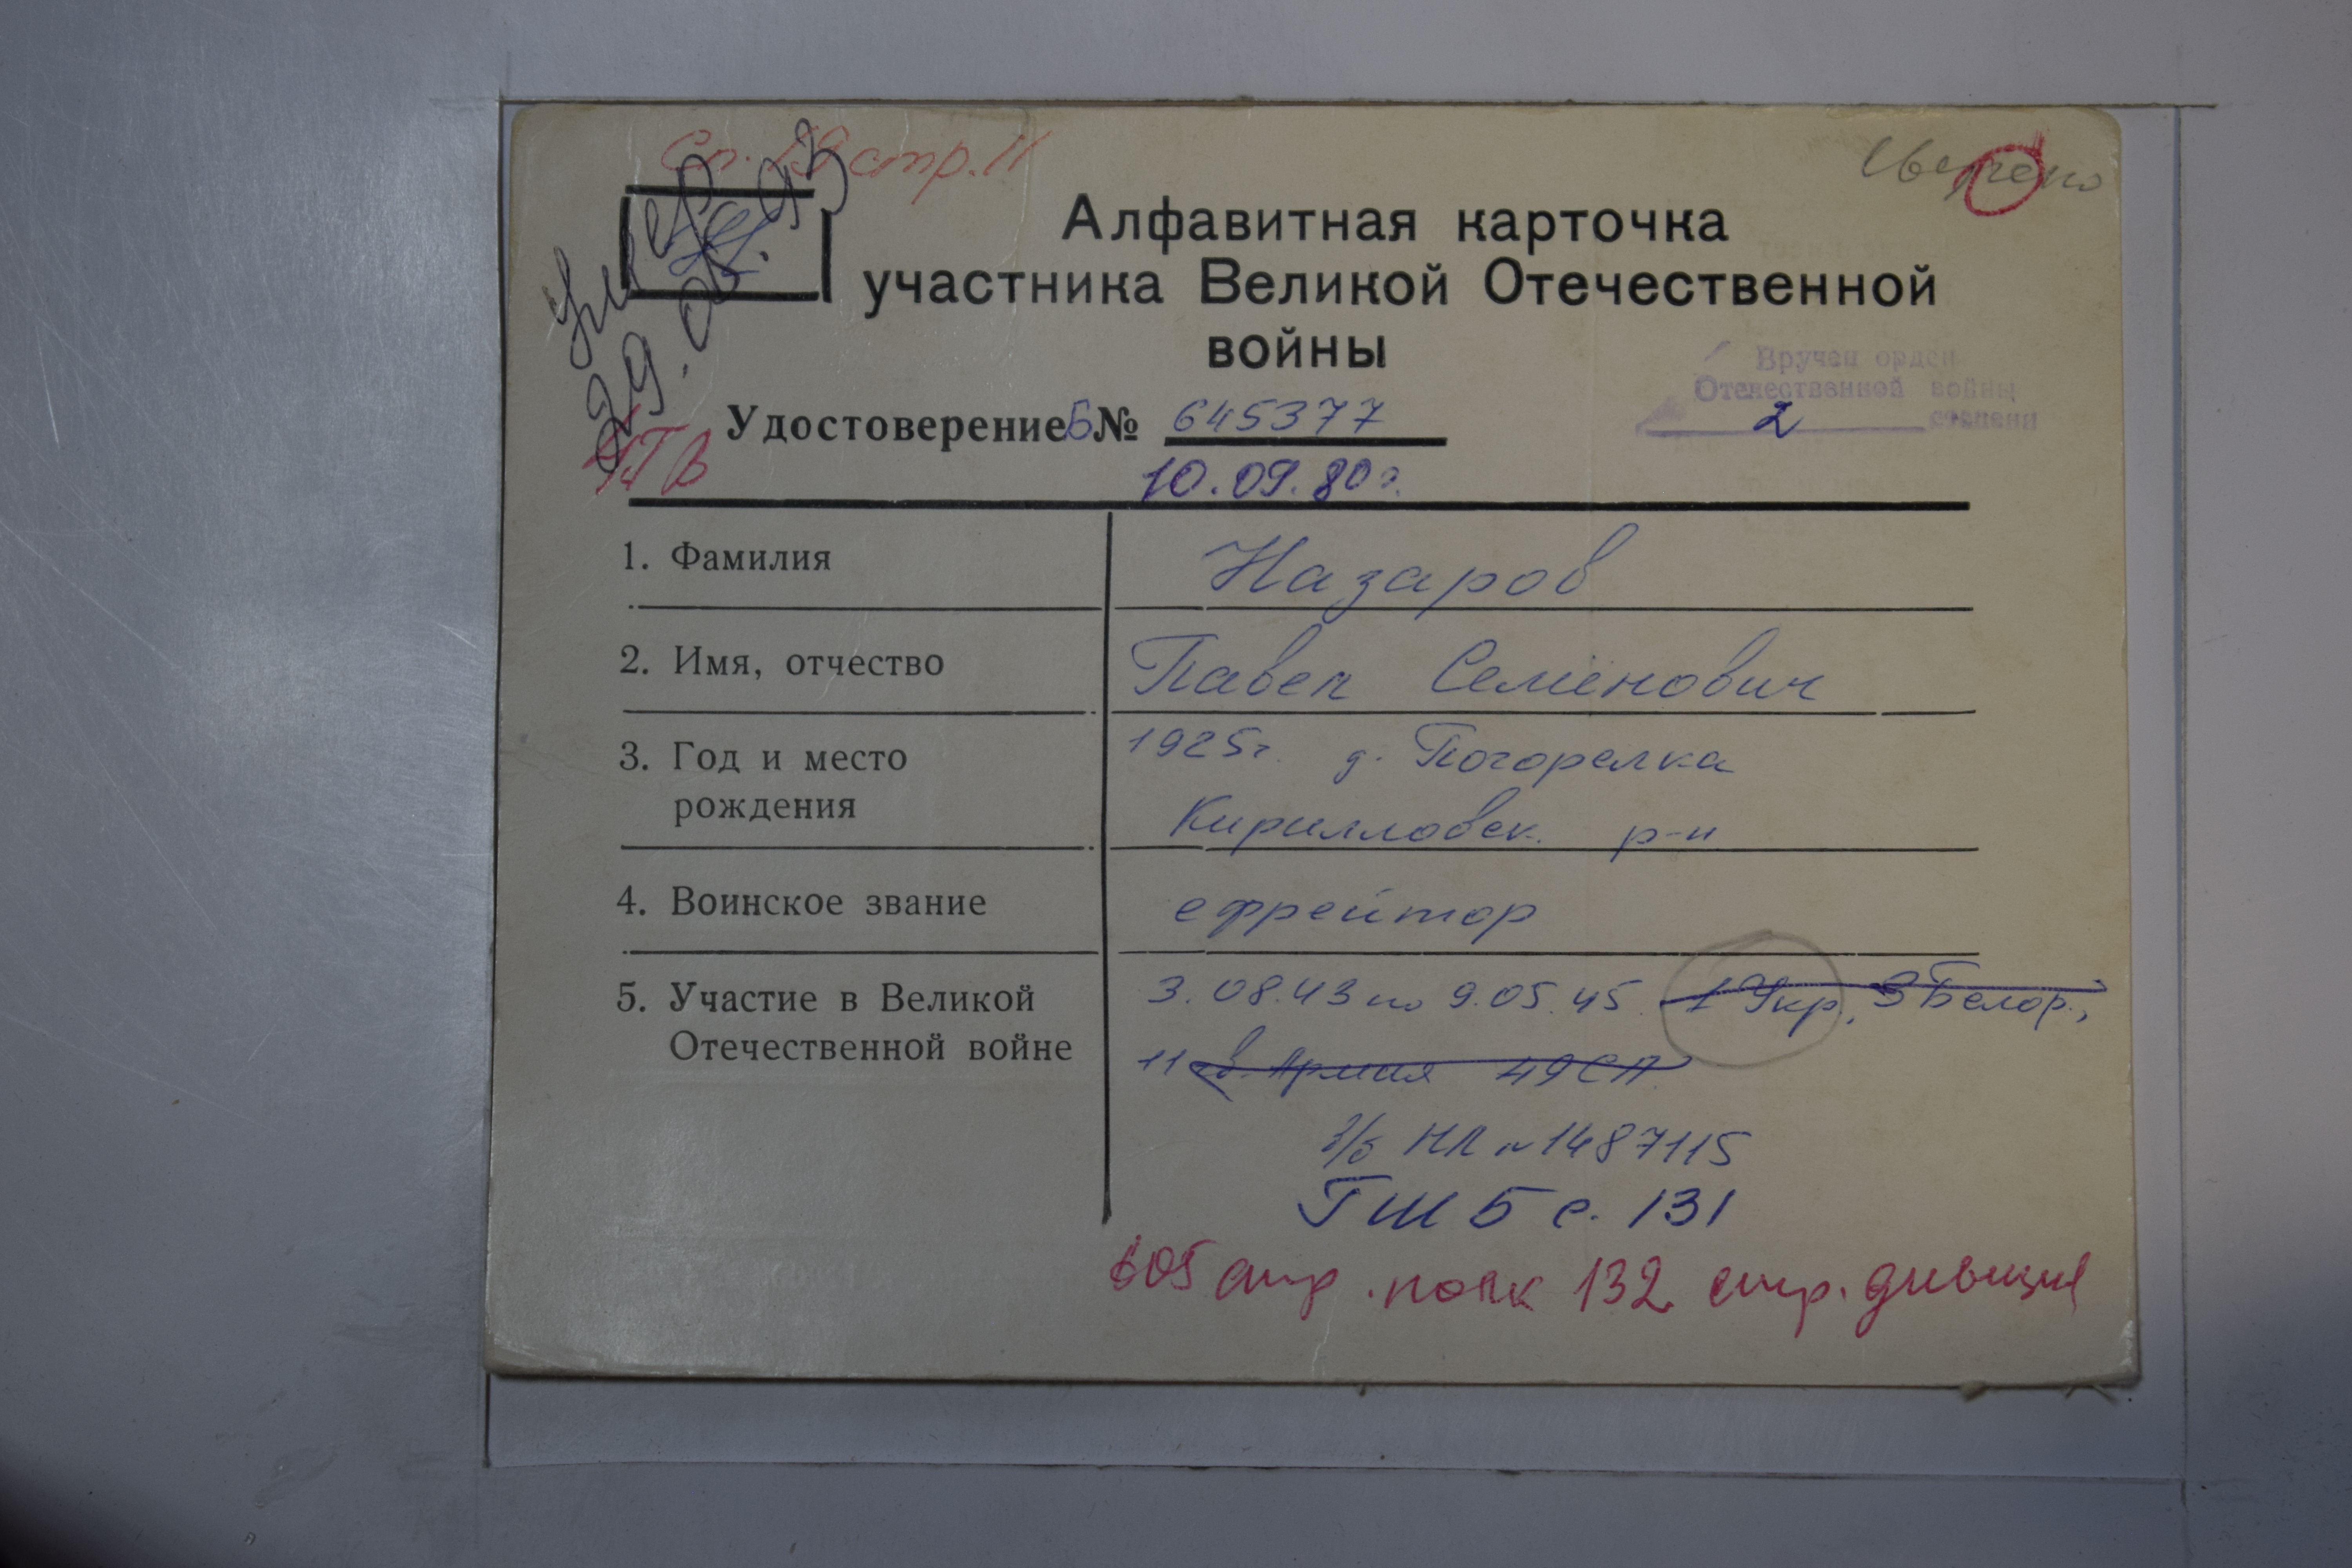 Сп. 29 стр. 11
Сверено
умер
29.08.93
Алфавитная карточка
участника Великой Отечественной
войны
Вручен орден
Отечественной войны
2 степени
Удостоверение Б № 645377
10.09.80 г.
1. Фамилия Назаров
2. Имя, отчество Павел Семёнович
3. Год и место 1925 г. д. Погорелка
рождения Кирилловск. р-н
4. Воинское звание ефрейтор
5. Участие в Великой 3.08.43 по 9.05.45. 1 Укр., 3 Белор.,
Отечественной войне 11 гв. Армия 49 СП
в/б НЛ № 1487115
ГШ 5 с. 131
605 стр. полк 132 стр. дивизия